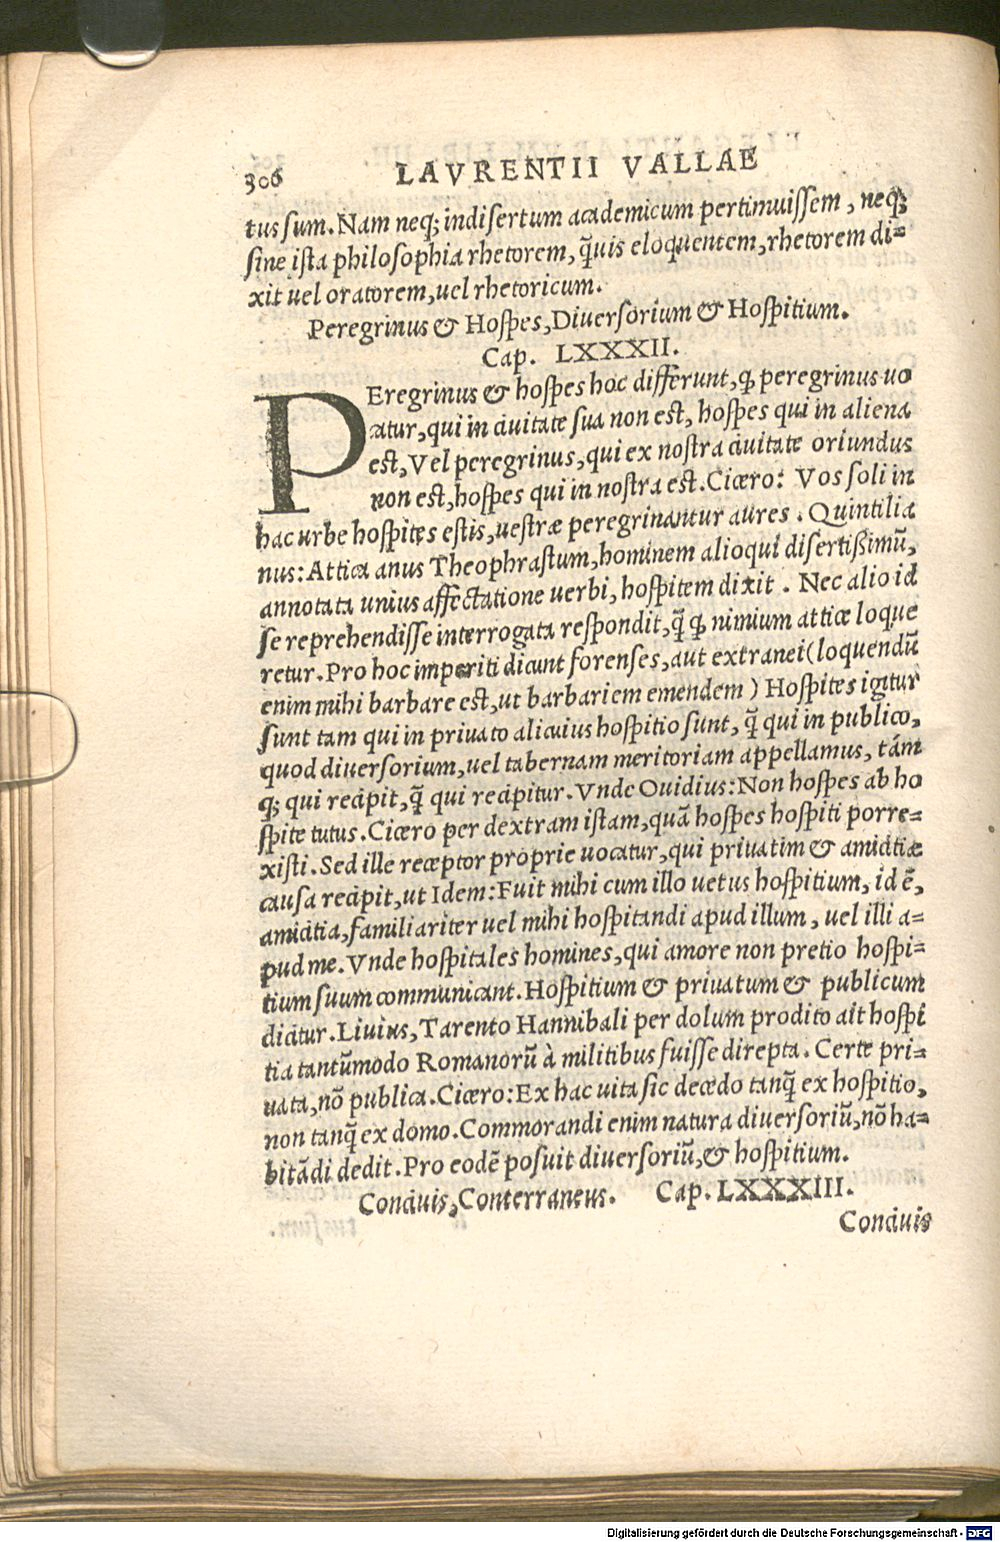 306 LAVRENTII VALLAE
tus sum. Nam neq; indisertum academicum pertimuissem, neq;
sine ista philosophia rhetorem, q̃uis eloquentem, rhetorem di=
xit uel oratorem, uel rhetoricum.
Peregrinus & Hospes, Diuersorium & Hospitium.
Cap. LXXXII.
PEregrinus & hospes hoc differunt, ꝙ peregrinus uo
catur, qui in ciuitate sua non est, hospes qui in aliena
est, Vel peregrinus, qui ex nostra ciuitate oriundus
non est, hospes qui in nostra est. Cicero: Vos soli in
hac urbe hospites estis, uestræ peregrinantur aures. Quintilia
nus: Attica anus Theophrastum, hominem alioqui disertissimũ,
annotata unius affectatione uerbi, hospitem dixit. Nec alio id
se reprehendisse interrogata respondit, q̃ ꝙ nimium atticæ loque
retur. Pro hoc imperiti dicunt forenses, aut extranei (loquendũ
enim mihi barbare est, ut barbariem emendem) Hospites igitur
sunt tam qui in priuato alicuius hospitio sunt, q̃ qui in publico,
quod diuersorium, uel tabernam meritoriam appellamus, tám
q; qui recipit, q̃ qui recipitur. Vnde Ouidius: Non hospes ab ho
spite tutus. Cicero per dextram istam, quã hospes hospiti porre=
xisti. Sed ille receptor proprie uocatur, qui priuatim & amicitiæ
causa recipit, ut Idem: Fuit mihi cum illo uetus hospitium, id ẽ,
amicitia, familiariter uel mihi hospitandi apud illum, uel illi a=
pud me. Vnde hospitales homines, qui amore non pretio hospi=
tium suum communicant. Hospitium & priuatum & publicum
dicitur. Liuius, Tarento Hannibali per dolum prodito ait hospi
tia tantũmodo Romanorũ à militibus fuisse direpta. Certe pri=
uata, nõ publica. Cicero: Ex hac uita sic decedo tanq̃ ex hospitio,
non tanq̃ ex domo. Commorandi enim natura diuersoriũ, nõ ha=
bitãdi dedit. Pro eodẽ posuit diuersoriũ, & hospitium.
Conciuis, Conterraneus. Cap. LXXXIII.
Conciuis
Digitalisierung gefördert durch die Deutsche Forschungsgemeinschaft - DFG